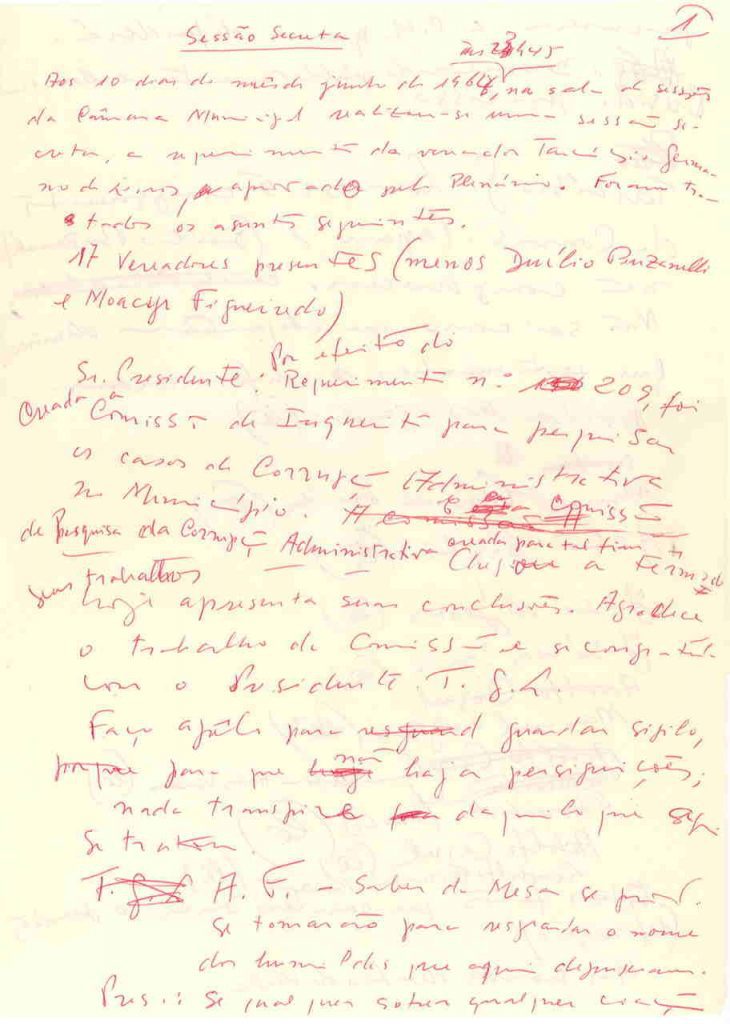 1
Sessão Secreta
às 23,45
Aos 10 dias do mês de junho de 1964, na sala de sessões
da Câmara Municipal realizou-se uma sessão se-
creta, a requerimento do vereador Tarcísio Germa-
no de , aprovado pelo Plenário. Foram tra-
tados os assuntos seguintes.
17 Vereadores presentes (menos Duílio
e Moacyr Figueiredo)
Por efeito do
Sr. Presidente: Requerimento nº 209, foi
criada a Comissão de Inquérito para pesquisar
os casos de Corrupção Administrativa
no Município. A Comissão
de Pesquisa da Corrupção Administrativa criada para tal fim
Chegou a termo de
seus trabalhos
hoje apresenta suas conclusões. Agradece
o trabalho da Comissão e se congratula
com o Presidente T. G. L.
Faço apêlo para guardar sigilo,
para que não haja perseguições;
nada transpire daquilo que aqui
se tratou.
A. F. - Saber da Mesa se
se tomarão para resguardar o nome
dos humildes que aqui depuseram.
Pres.: Se qualquer sofrer qualquer